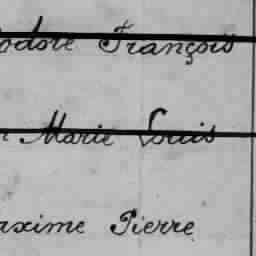 odore François
Marie Louis
axime Pierre